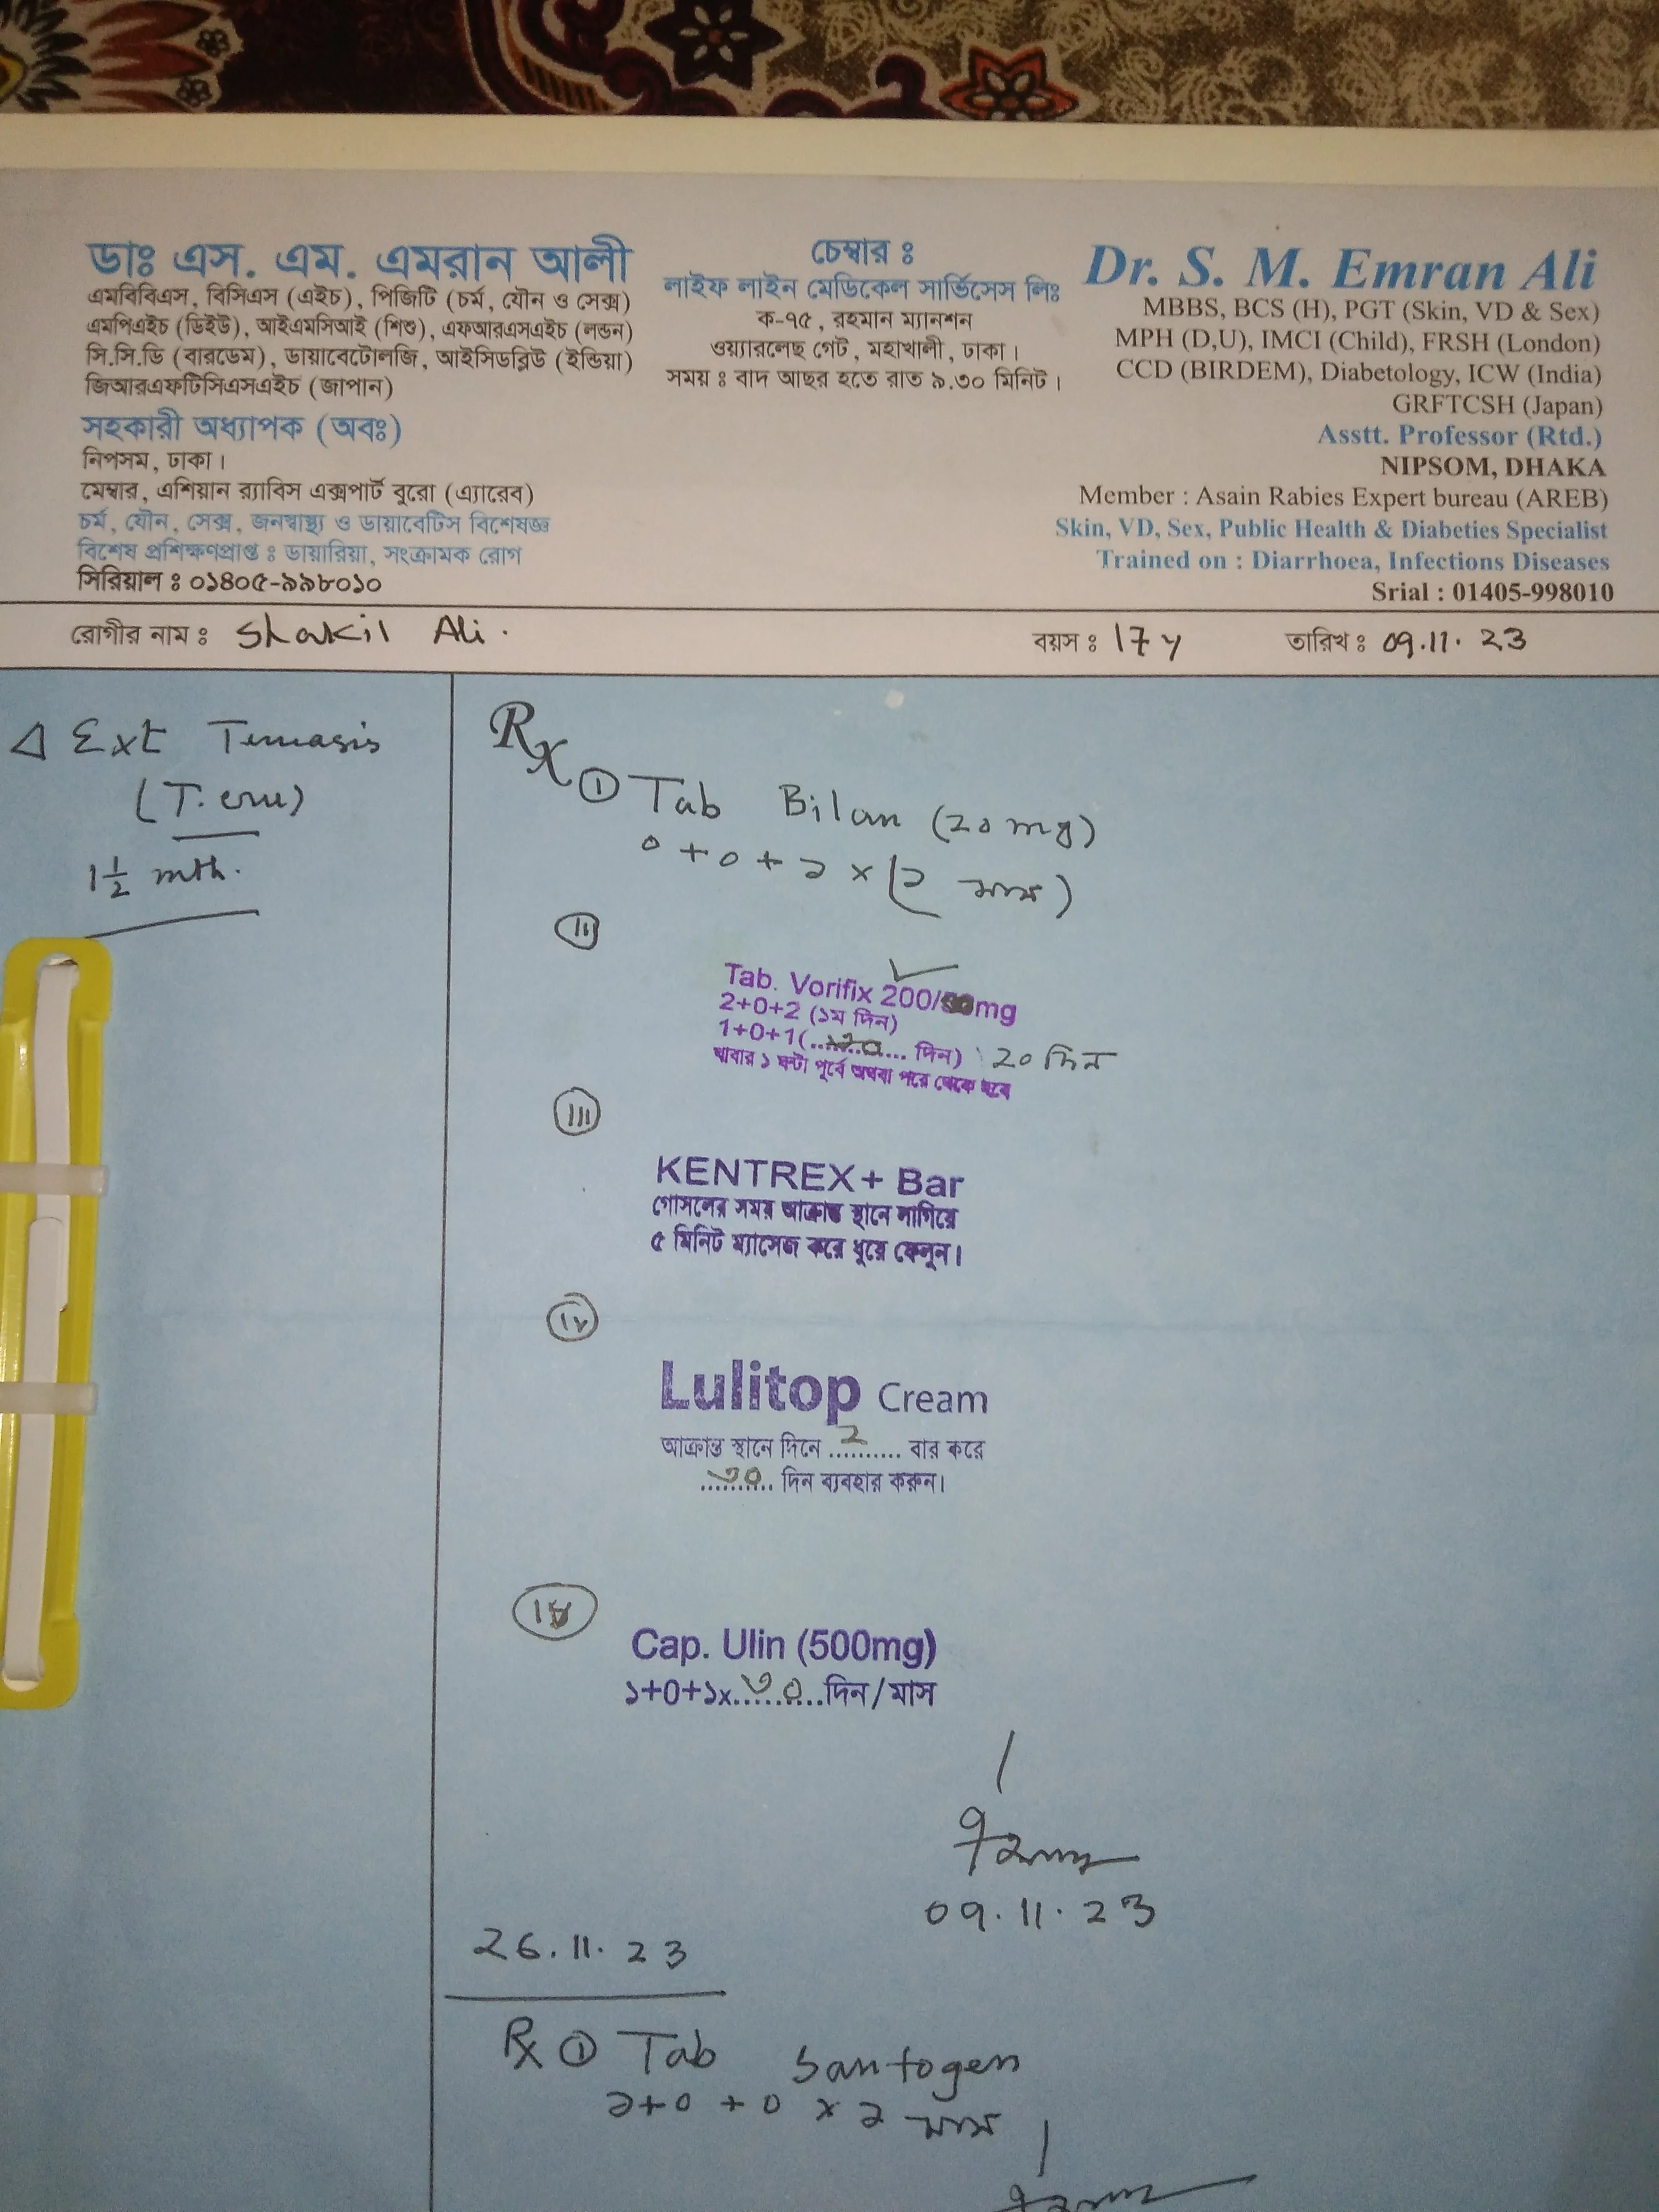 ডাঃ এস. এম. এমরান আলী
এমবিবিএস, বিসিএস (এইচ), পিজিটি (চর্ম, যৌন ও সেক্স)
এমপিএইচ (ডিইউ), আইএমসিআই (শিশু), এফআরএসএইচ (লন্ডন)
সি.সি.ডি (বারডেম), ডায়াবেটোলজি, আইসিডব্লিউ (ইন্ডিয়া)
জিআরএফটিসিএসএইচ (জাপান)
সহকারী অধ্যাপক (অবঃ)
নিপসম, ঢাকা।
মেম্বার, এশিয়ান র‍্যাবিস এক্সপার্ট বুরো (এ্যারেব)
চর্ম, যৌন, সেক্স, জনস্বাস্থ্য ও ডায়াবেটিস বিশেষজ্ঞ
বিশেষ প্রশিক্ষণপ্রাপ্ত ঃ ডায়ারিয়া, সংক্রামক রোগ
সিরিয়াল ঃ ০১৪০৫-৯৯৮০১০
চেম্বার ঃ
লাইফ লাইন মেডিকেল সার্ভিসেস লিঃ
ক-৭৫, রহমান ম্যানশন
ওয়্যারলেছ গেট, মহাখালী, ঢাকা।
সময় ঃ বাদ আছর হতে রাত ৯.৩০ মিনিট।
Dr. S. M. Emran Ali
MBBS, BCS (H), PGT (Skin, VD & Sex)
MPH (D,U), IMCI (Child), FRSH (London)
CCD (BIRDEM), Diabetology, ICW (India)
GRFTCSH (Japan)
Asstt. Professor (Rtd.)
NIPSOM, DHAKA
Member : Asain Rabies Expert bureau (AREB)
Skin, VD, Sex, Public Health & Diabeties Specialist
Trained on : Diarrhoea, Infections Diseases
Srial : 01405-998010
রোগীর নাম ঃ Shakil Ali. বয়স ঃ 17 y তারিখ ঃ 09.11.23
Δ Ext
1½ mth.
Rx
① Tab Bilan (20mg)
0+0+১ × (২ মাস)
(ii)
Tab. Vorifix 200/50mg
2+0+2 (১ম দিন)
1+0+1(.......... দিন) 20 দিন
খাবার ১ ঘন্টা পূর্বে অথবা পরে খেতে হবে
(iii)
KENTREX+ Bar
গোসলের সময় আক্রান্ত স্থানে লাগিয়ে
৫ মিনিট ম্যাসেজ করে ধুয়ে ফেলুন।
(iv)
Lulitop Cream
আক্রান্ত স্থানে দিনে ....2...... বার করে
...৩০... দিন ব্যবহার করুন।
Cap. Ulin (500mg)
১+0+১x...৩০...দিন/মাস
09.11.23
26.11.23
Rx ① Tab Santogen
১+0+0 × ২ মাস